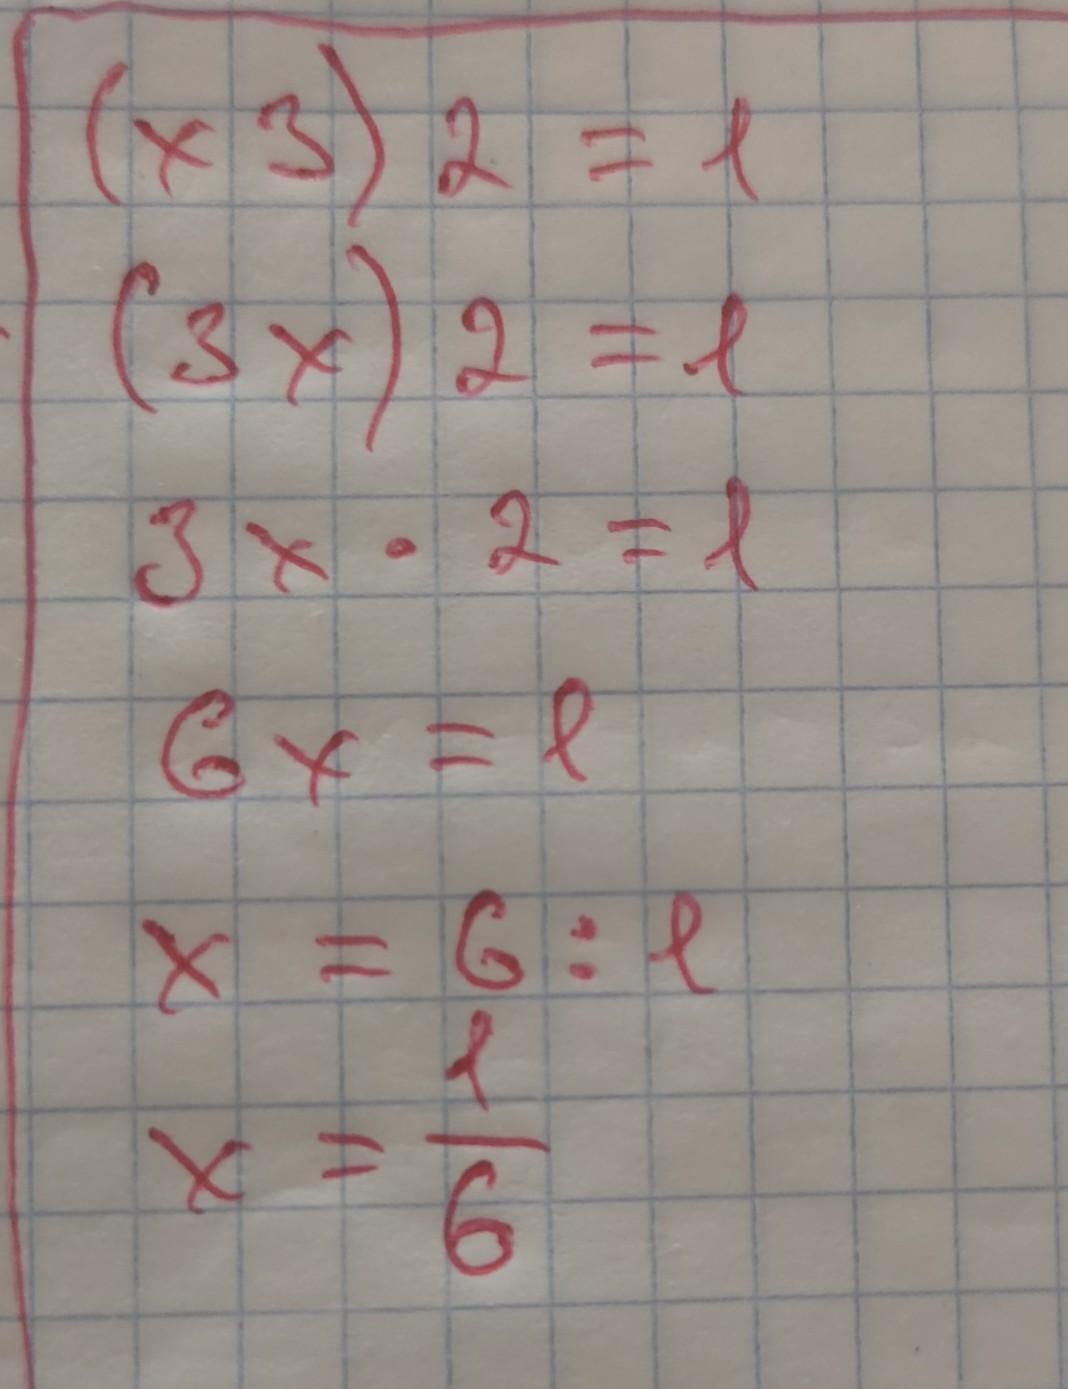 (x 3) 2 = 1
(3x) 2 = 1
3x · 2 = 1
6x = 1
x = 6 : 1
x = 1/6